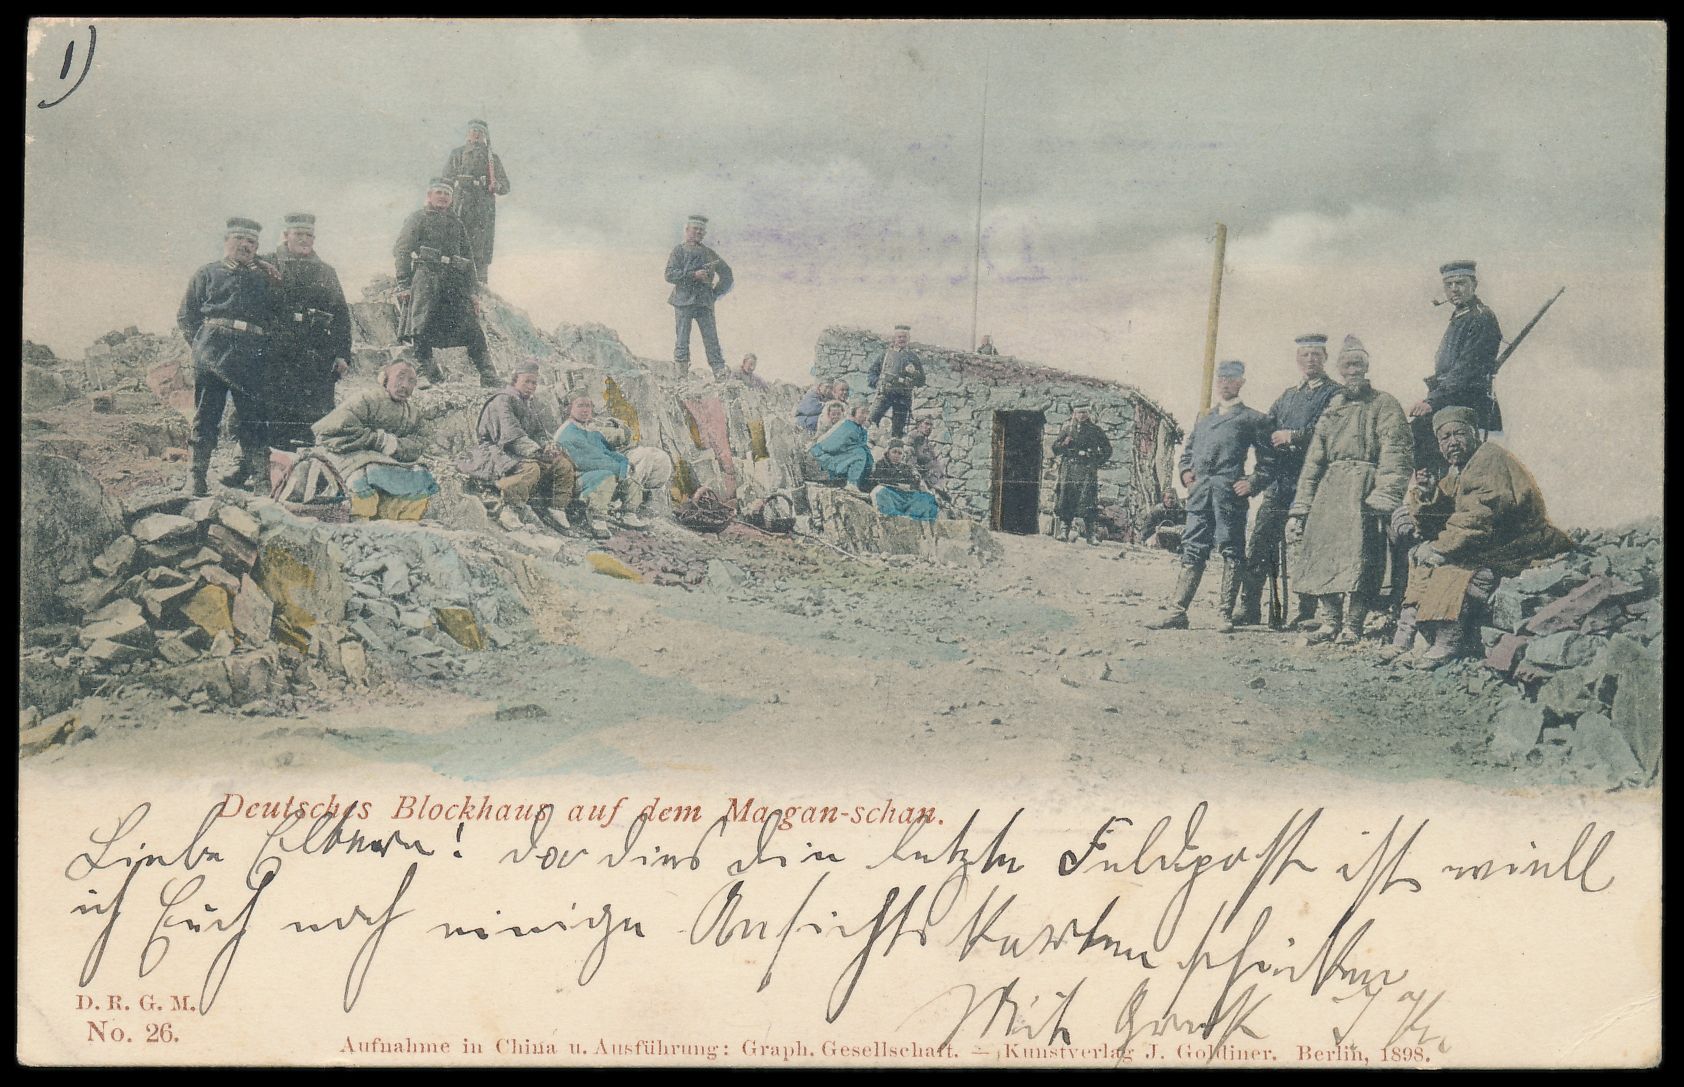 1)
Deutsches Blockhaus auf dem Maagan-schan.
Liebe Eltern! da dies die letzte Feldpost ist will
ich Euch noch einige Ansichts Karten schicken
Mit Gruß
D. R. G. M.
No. 26.
Aufnahme in China u. Ausführung: Graph. Gesellschaft. — Kunstverlag J. Goldiner. Berlin, 1898.